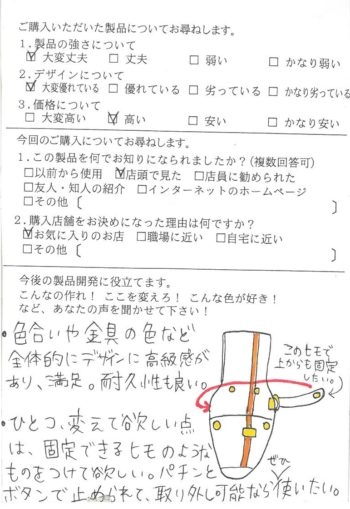 ご購入いただいた製品についてお尋ねします。
1.製品の強さについて
☑大変丈夫 □丈夫 □弱い □かなり弱い
2.デザインについて
☑大変優れている □優れている □劣っている □かなり劣っている
3.価格について
□大変高い ☑高い □安い □かなり安い
今回のご購入についてお尋ねします。
1.この製品を何でお知りになられましたか?(複数回答可)
□以前から使用 ☑店頭で見た □店員に勧められた
□友人・知人の紹介 □インターネットのホームページ
□その他〔 〕
2.購入店舗をお決めになった理由は何ですか?
☑お気に入りのお店 □職場に近い □自宅に近い
□その他〔 〕
今後の製品開発に役立てます。
こんなの作れ! ここを変えろ! こんな色が好き!
など、あなたの声を聞かせて下さい!
・色合いや金具の色など
全体的にデザインに高級感が
あり、満足。耐久性も良い。
このヒモで
上からも固定
したい。
・ひとつ、変えて欲しい点
は、固定できるヒモのような
ものをつけて欲しい。パチンと
ボタンで止められて、取り外し可能ならぜひ使いたい。